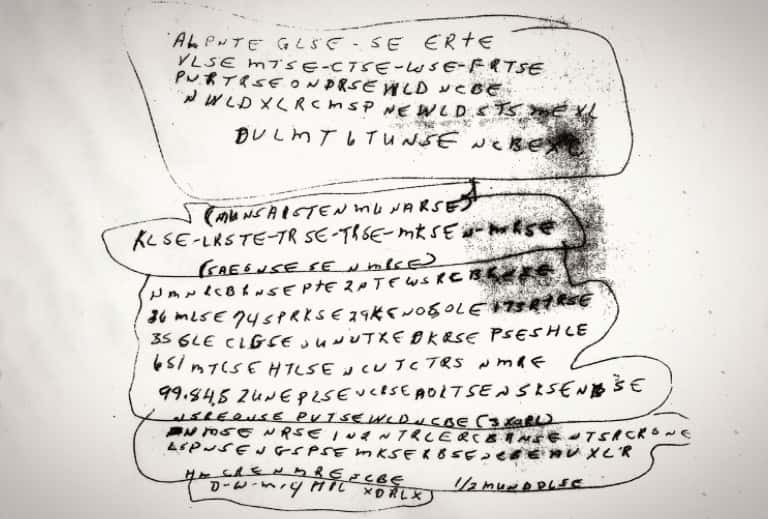 ALPNTE GLSE-SE ERTE
VLSE MTSE-CTSE-WSE-FRTSE
PURTRSEONDRSEWLD NCBE
NWLDXLRCMSP NEWLDSTS MEXL
DULMT6TUNSE NCBEXC
(MUNSAISTENMUNARSE)
KLSE-LRSTE-TRSE-TRSE-MKSEN-MRSE
(SAEGNSESE NMRSE)
NMNRCBRNSEPTE2NTEWSRCBRNSE
36MLSE74SPRKSE29KENOSOLE173RTRSE
35GLE CLGSE UNUTXE DKRSE PSESHLE
651MTCSE HTLSE NCUTCTRS NMRE
99.84.52UNEPLSENCRSEAOLTSENSKSENBSE
NSREONSE PUTSEWLDNCBE(3XORL)
NRSE INRNTRLERCBRNSE NTSRCRBNE
LSPNSENGSPSEMKSERBSENCBEAUXLR
HM CRENMRE NCBE 1/2MUNDDLSE
D-W-M-4 MIL XDRLX